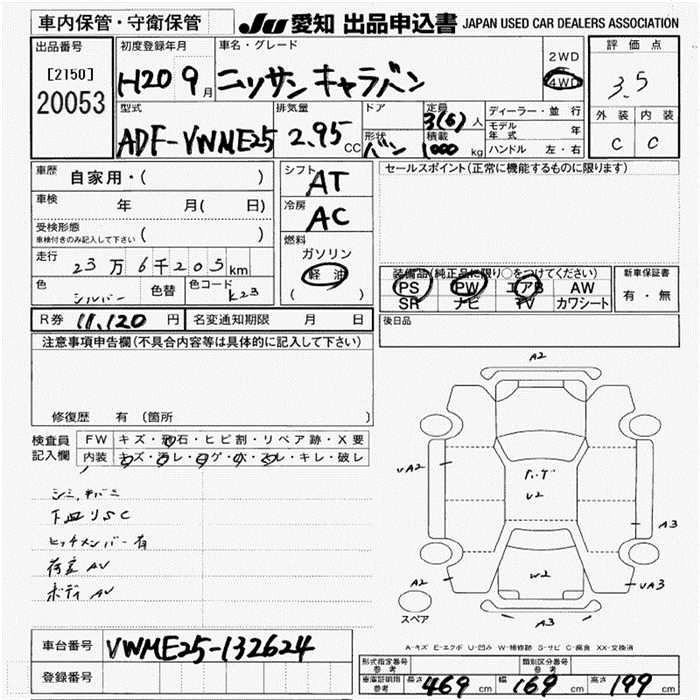 車内保管・守衛保管
JU 愛知 出品申込書 JAPAN USED CAR DEALERS ASSOCIATION
出品番号
[2150]
20053
初度登録年月
H20 9月
車名・グレード
ニッサン キャラバン
2WD
4WD
評価点
3.5
外装 内装
C C
型式
ADF-VWME25
排気量
2.95 CC
ドア
形状
バン
定員
3(6)人
積載
1000 kg
ディーラー・並行
モデル年式 年
ハンドル 左・右
車歴 自家用・( )
車検 年 月( 日)
受検形態
車検付きのみ記入して下さい ( )
走行 23万6千205km
色 シルバー 色替 色コード K23
シフト
AT
冷房
AC
燃料
ガソリン
軽油
( )
セールスポイント(正常に機能するものに限ります)
装備品(純正品に限り○をつけてください)
PS PW エアB AW
SR ナビ TV カワシート
新車保証書
有・無
R券 11,120円 名変通知期限 月 日
後日品
注意事項申告欄(不具合内容等は具体的に記入して下さい)
修復歴 有 (箇所
検査員記入欄
FW キズ・飛石・ヒビ割・リペア跡・X要
内装 キズ・汚レ・コゲ・バ・スレ・キレ・破レ
下廻りSC
ヒッチメンバー有
荷室 AU
ボディ AU
A2
UA2
U2
A3
A2
W2
UA3
A3
スペア
A-キズ E-エクボ U-凹み W-補修跡 S-サビ C-腐食 XX-交換済
車台番号 VWME25-132624
登録番号
形式指定番号
参考
類別区分番号
参考
車庫証明用
参考
長さ 469 cm 幅 169 cm 高さ 199 cm